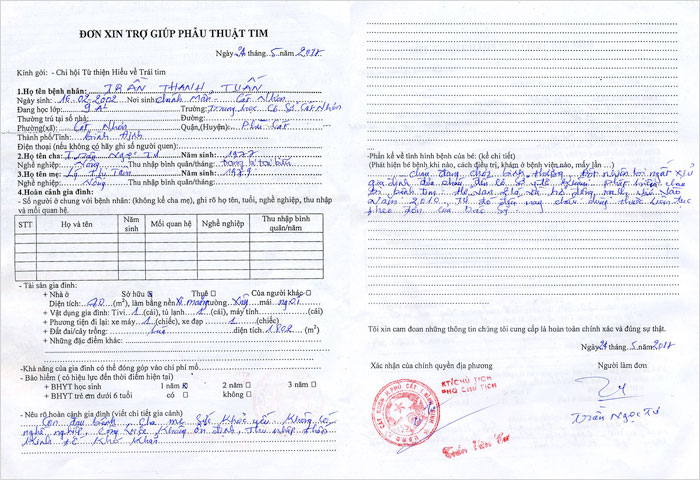 ĐƠN XIN TRỢ GIÚP PHẪU THUẬT TIM
Ngày 24 tháng 5 năm 2018
Kính gởi: - Chi hội Từ thiện Hiểu về Trái tim
1.Họ tên bệnh nhân: TRẦN THANH TUẤN
Ngày sinh: 16-02-2002 Nơi sinh: Chánh Mẫn - Cát Nhơn
Đang học lớp: 9A1 Trường: Trung học Cơ Sở Cát Nhơn
Thường trú tại số nhà: Đường:
Phường(xã): Cát Nhơn Quận,(Huyện): Phù Cát
Thành phố/Tỉnh: Bình Định
Điện thoại (nếu không có hãy ghi số người quen):
2.Họ tên cha: Trần Ngọc Tư Năm sinh: 1977
Nghề nghiệp: Nông Thu nhập bình quân/tháng:
3.Họ tên mẹ: Năm sinh: 1979
Nghề nghiệp: Nông Thu nhập bình quân/tháng:
4.Hoàn cảnh gia đình:
- Số người ở chung với bệnh nhân: (không kể cha mẹ), ghi rõ họ tên, tuổi, nghề nghiệp, thu nhập
và mối quan hệ.
STT Họ và tên Năm sinh Mối quan hệ Nghề nghiệp Thu nhập bình quân/năm
- Tài sản gia đình:
+ Nhà ở Sở hữu Thuê Của người khác
Diện tích: (m²), làm bằng nền Xi măng tường Xây mái ngói
+ Vật dụng gia đình: Tivi 1 (cái), tủ lạnh 1 (cái), máy tính (cái)
+ Phương tiện đi lại: xe máy 1 (chiếc), xe đạp 1 (chiếc)
+ Đất đai/cây trồng: lúa diện tích 1802 (m²)
+ Những đặc điểm khác:
-Khả năng của gia đình có thể đóng góp vào chi phí mổ
- Bảo hiểm ( có hiệu lực đến thời điểm hiện tại)
+ BHYT học sinh 1 năm 2 năm 3 năm
+ BHYT trẻ em dưới 6 tuổi có không
- Nêu rõ hoàn cảnh gia đình (viết chi tiết gia cảnh)
Con đau bệnh, Cha mẹ Sức Khỏe yếu Không có
nghề nghiệp, Công việc Không ổn định, Thu nhập thấp
Kinh tế Khó Khăn
-Phần kể về tình hình bệnh của bé: (kể chi tiết)
(Phát hiện bé bệnh khi nào, cách điều trị, khám ở bệnh viện nào, mấy lần …)
cháu đang chơi bình thường. Đột nhiên bị ngất xỉu
gia đình đưa cháu đến cơ sở y tế khám phát hiện cháu
bị bệnh Tim
Năm 2010. Từ đó đến nay cháu dùng thuốc liên tục
theo đơn của bác sỹ
Tôi xin cam đoan những thông tin chúng tôi cung cấp là hoàn toàn chính xác và đúng sự thật.
Ngày 24 tháng 5 năm 2018
Xác nhận của chính quyền địa phương Người làm đơn
KT/CHỦ TỊCH
PHÓ CHỦ TỊCH
Trần Ngọc Tư